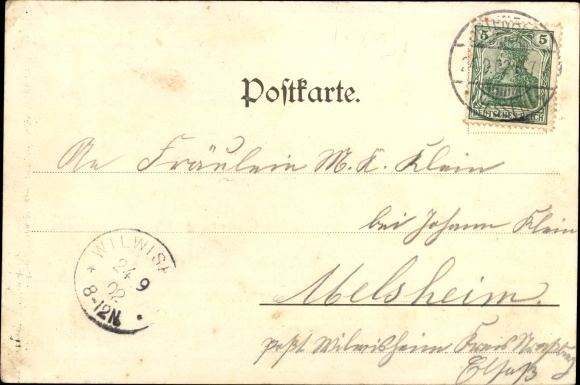 5 5
DEUTSCHES REICH
Postkarte.
An Fräulein M. K. Klein
bei Johann Klein
Melsheim.
post Wilwisheim Kreis
Elsaß
* WILWISH
24 9
02
8-12N.